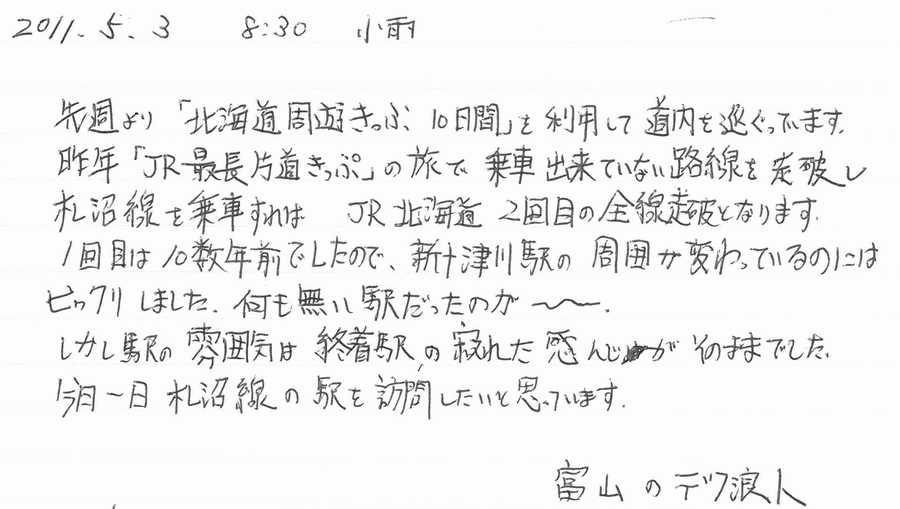 2011.5.3 8:30 小雨
先週より「北海道周遊きっぷ 10日間」を利用して道内を巡ぐっています.
昨年「JR最長片道きっぷ」の旅で乗車出来ていない路線を走破し
札沼線を乗車すれば JR北海道 2回目の全線走破となります.
1回目は10数年前でしたので、新十津川駅の周囲が変わっているのには
ビックリしました. 何も無い駅だったのが〜〜.
しかし駅の雰囲気は終着駅の寂れた感じがそのままでした.
今日一日札沼線の駅を訪問したいと思っています.
富山のデフ浪人